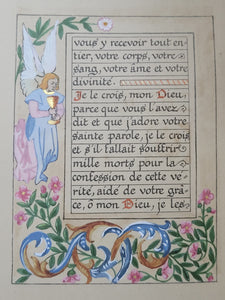 vous y recevoir tout en-
tier, votre corps, votre
sang, votre âme et votre
divinité.
Je le crois, mon Dieu,
parce que vous l'avez
dit et que j'adore votre
sainte parole, je le crois
et s'il fallait souffrir
mille morts pour la
confession de cette vé-
rité, aidé de votre grâ-
ce, ô mon Dieu, je les